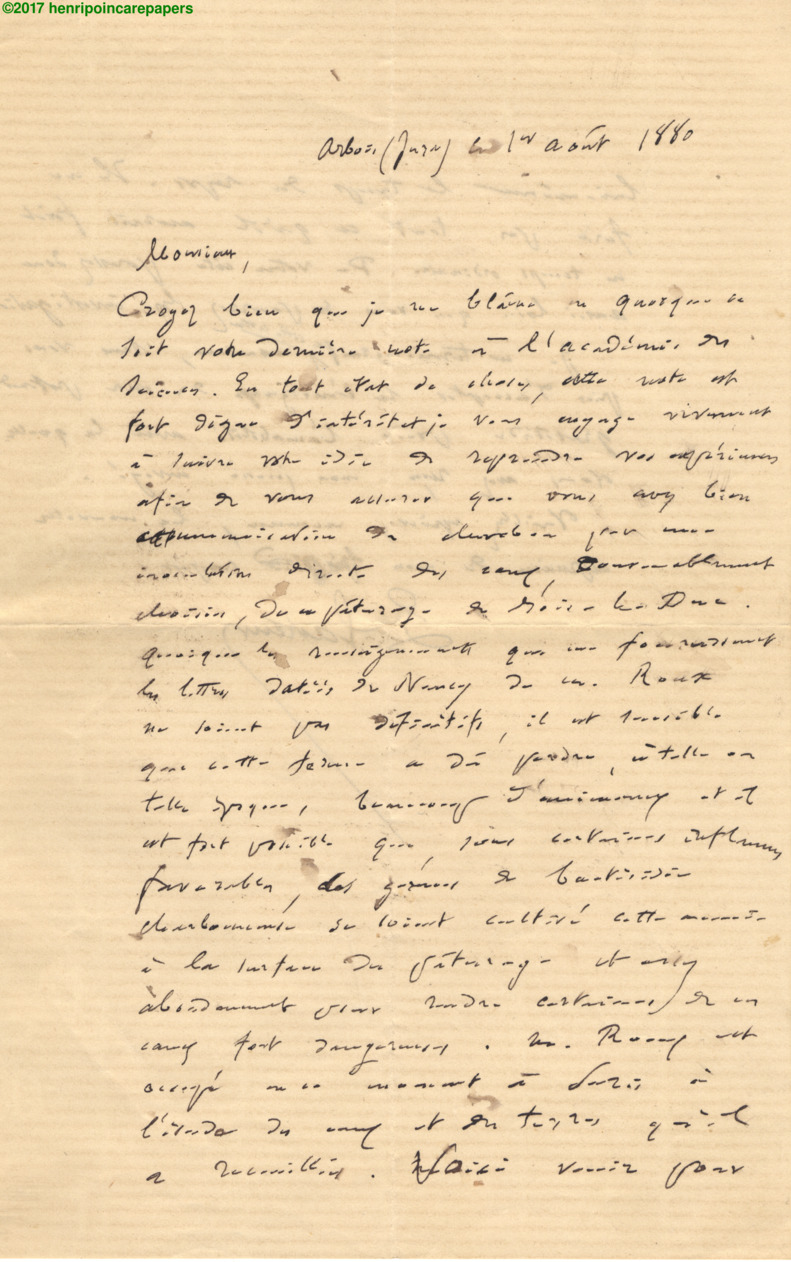 ©2017 henripoincarepapers
Arbois (Jura) le 1er août 1880
Monsieur,
Croyez bien que je ne blâme en quoique ce
soit votre dernière note à l'académie des
sciences. En tout état de choses, cette note est
fort digne d'intérêt et je vous engage vivement
à suivre votre idée de reprendre vos expériences
afin de vous assurer que vous avez bien
communication du charbon par une
inoculation directe des eaux, convenablement
choisies, du pâturage de
quoique les renseignements que me fournissent
les lettres datées de Nancy de M. Roux
ne soient pas définitifs, il est
que cette ferme a dû perdre, à telle ou
telle époque, beaucoup d'animaux et il
est fort possible que, sous certaines influences
favorables, des germes de bactéridie
charbonneuse se soient cultivé cette année
à la surface du pâturage et assez
abondamment pour rendre certaines de ces
eaux fort dangereuses. M. Roux est
occupé en ce moment à Paris à
l'étude des eaux et des terres qu'il
a recueillies. Voici venir pour